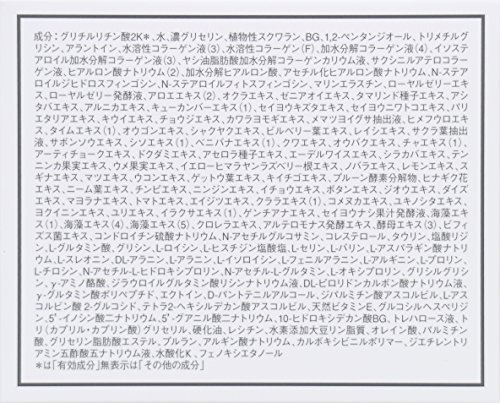 成分：グリチルリチン酸2K＊、水、濃グリセリン、植物性スクワラン、BG、1,2-ペンタンジオール、トリメチルグ
リシン、アラントイン、水溶性コラーゲン液（3）、水溶性コラーゲン液（F）、加水分解コラーゲン液（4）、イソステ
アロイル加水分解コラーゲン液（3）、ヤシ油脂肪酸加水分解コラーゲンカリウム液、サクシニルアテロコラー
ゲン液、ヒアルロン酸ナトリウム（2）、加水分解ヒアルロン酸、アセチル化ヒアルロン酸ナトリウム、N-ステア
ロイルジヒドロスフィンゴシン、N-ステアロイルフィトスフィンゴシン、マリンエラスチン、ローヤルゼリーエキ
ス、ローヤルゼリー発酵液、アロエエキス（2）、オクラエキス、ゼニアオイエキス、タマリンド種子エキス、ア
シタバエキス、アルニカエキス、キューカンバーエキス（1）、セイヨウキズタエキス、セイヨウニワトコエキス、パリ
エタリアエキス、キウイエキス、チョウジエキス、カワラヨモギエキス、メマツヨイグサ抽出液、ヒメフウロエキ
ス、タイムエキス（1）、オウゴンエキス、シャクヤクエキス、ビルベリー葉エキス、レイシエキス、サクラ葉抽出
液、サボンソウエキス、シソエキス（1）、ベニバナエキス（1）、クワエキス、オウバクエキス、チャエキス（1）、
アーティチョークエキス、ドクダミエキス、アセロラ種子エキス、エーデルワイスエキス、シラカバエキス、テン
ニンカ果実エキス、ウメ果実エキス、イエローヒマラヤンラズベリー根エキス、ノバラエキス、レモンエキス、ス
ギナエキス、マツエキス、ウコンエキス、ゲットウ葉エキス、キイチゴエキス、プルーン酵素分解物、ヒナギク花
エキス、ニーム葉エキス、チンピエキス、ニンジンエキス、イチョウエキス、ボタンエキス、ジオウエキス、ダイズ
エキス、マヨラナエキス、トマトエキス、エイジツエキス、クララエキス（1）、コメヌカエキス、ユキノシタエキス、
ヨクイニンエキス、ユリエキス、イラクサエキス（1）、ゲンチアナエキス、セイヨウナシ果汁発酵液、海藻エキス
（1）、海藻エキス（4）、海藻エキス（5）、クロレラエキス、アルテロモナス発酵エキス、酵母エキス（3）、ビフィ
ズス菌エキス、コンドロイチン硫酸ナトリウム、N-アセチルグルコサミン、コレステロール、タウリン、塩酸リジ
ン、L-グルタミン酸、グリシン、L-ロイシン、L-ヒスチジン塩酸塩、L-セリン、L-バリン、L-アスパラギン酸ナトリ
ウム、L-スレオニン、DL-アラニン、L-アラニン、L-イソロイシン、L-フェニルアラニン、L-アルギニン、L-プロリ
ン、L-チロシン、N-アセチル-L-ヒドロキシプロリン、N-アセチル-L-グルタミン、L-オキシプロリン、グリシルグリ
シン、γ-アミノ酪酸、ジラウロイルグルタミン酸リシンナトリウム液、DL-ピロリドンカルボン酸ナトリウム液、
γ-グルタミン酸ポリペプチド、エクトイン、D-パントテニールアルコール、ジパルミチン酸アスコルビル、L-アス
コルビン酸 2-グルコシド、テトラ2-ヘキシルデカン酸アスコルビル、天然ビタミンE、グリコシルヘスペリジ
ン、5'-イノシン酸二ナトリウム、5'-グアニル酸二ナトリウム、10-ヒドロキシデカン酸BG、トレハロース液、ト
リ（カプリル・カプリン酸）グリセリル、硬化油、レシチン、水素添加大豆リン脂質、オレイン酸、パルミチン
酸、グリセリン脂肪酸エステル、プルラン、アルギン酸ナトリウム、カルボキシビニルポリマー、ジエチレントリ
アミン五酢酸五ナトリウム液、水酸化K、フェノキシエタノール
＊は「有効成分」無表示は「その他の成分」